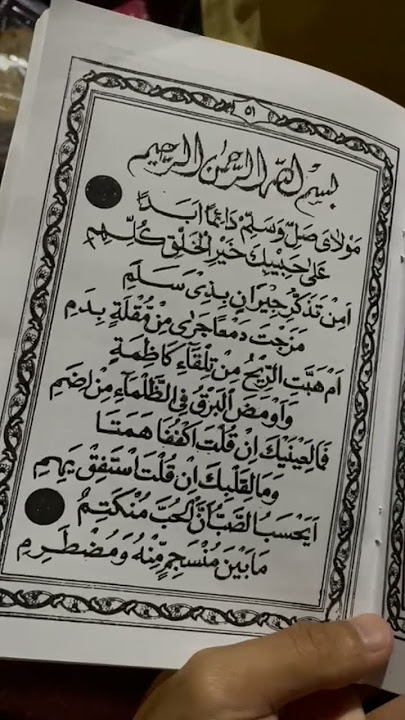 ٥١
بسم الله الرحمن الرحيم
مَوْلَايَ صَلِّ وَسَلِّمْ دَائِمًا اَبَدًا
عَلٰى حَبِيْبِكَ خَيْرِ الْخَلْقِ كُلِّهِمِ
اَمِنْ تَذَكُّرِ جِيْرَانٍ بِذِيْ سَلَمِ
مَزَجْتَ دَمْعًا جَرٰى مِنْ مُقْلَةٍ بِدَمِ
اَمْ هَبَّتِ الرِّيْحُ مِنْ تِلْقَاءِ كَاظِمَةٍ
وَاَوْمَضَ الْبَرْقُ فِى الظَّلْمَاءِ مِنْ اِضَمِ
فَمَا لِعَيْنَيْكَ اِنْ قُلْتَ اكْفُفَا هَمَتَا
وَمَا لِقَلْبِكَ اِنْ قُلْتَ اسْتَفِقْ يَهِمِ
اَيَحْسَبُ الصَّبُّ اَنَّ الْحُبَّ مُنْكَتِمٌ
مَا بَيْنَ مُنْسَجِمٍ مِّنْهُ وَمُضْطَرِمِ